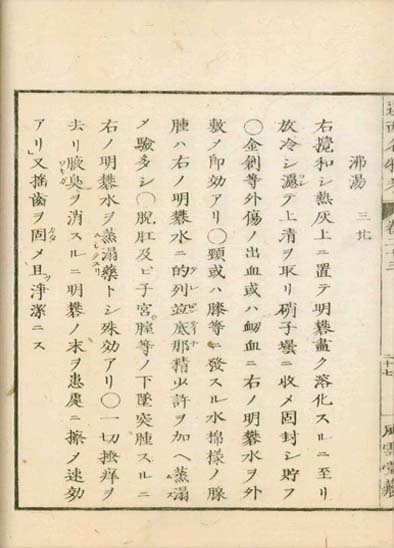 遠西名物考 卷二十三 十七 風雲堂藏
沸湯 三比
右攪和シ熱灰上ニ置テ明礬盡ク溶化スルニ至リ
放冷シ濾テ上清ヲ取リ硝子壜ニ收メ固封シ貯フ
〇金創等外傷ノ出血或ハ衄血ニ右ノ明礬水ヲ外
敷ノ即効アリ〇頸或ハ膝等ニ發スル水綿様ノ腺
腫ハ右ノ明礬水ニ的列並底那精少許ヲ加ヘ蒸溻
メ驗多シ〇脫肛及ビ子宮腟等ノ下墜突腫スルニ
右ノ明礬水ヲ蒸溻藥トシ殊効アリ〇一切搔痒ヲ
去リ腋臭ヲ消スルニ明礬ノ末ヲ患處ニ擦メ速効
アリ」又揺齒ヲ固メ且ツ淨潔ニス